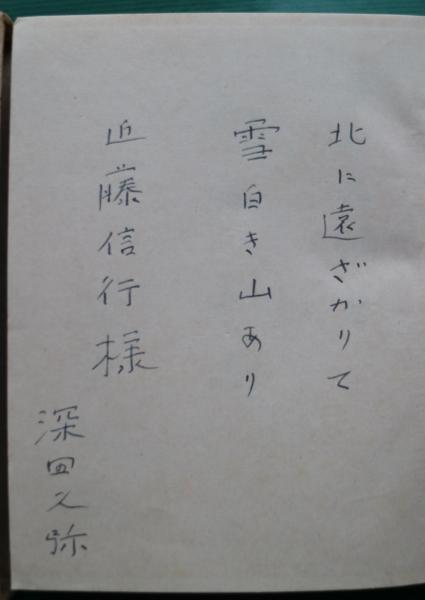 北に遠ざかりて
雪白き山あり
近藤信行様
深田久弥